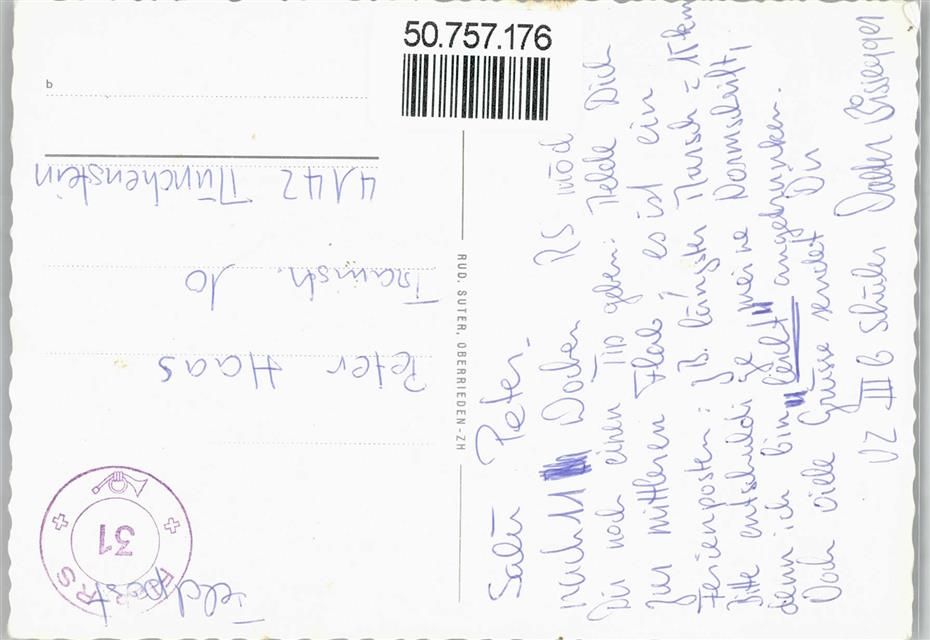 50.757.176
Feldpost
RS
31
Peter Haas
Tramstr. 10
4142 Münchenstein
b
RUD. SUTER, OBERRIEDEN-ZH
Salü Peter.
Nach 11 Wochen RS
Dir noch einen Tip geben. Melde Dich
zur mittleren Flab! es ist ein
Ferienposten: z.B. längster Marsch =
Bitte entschuldige meine
denn ich bin "leicht" angetrunken.
Doch viele Grüsse sendet Dir
VZ III b Schüler Walter Bissegger